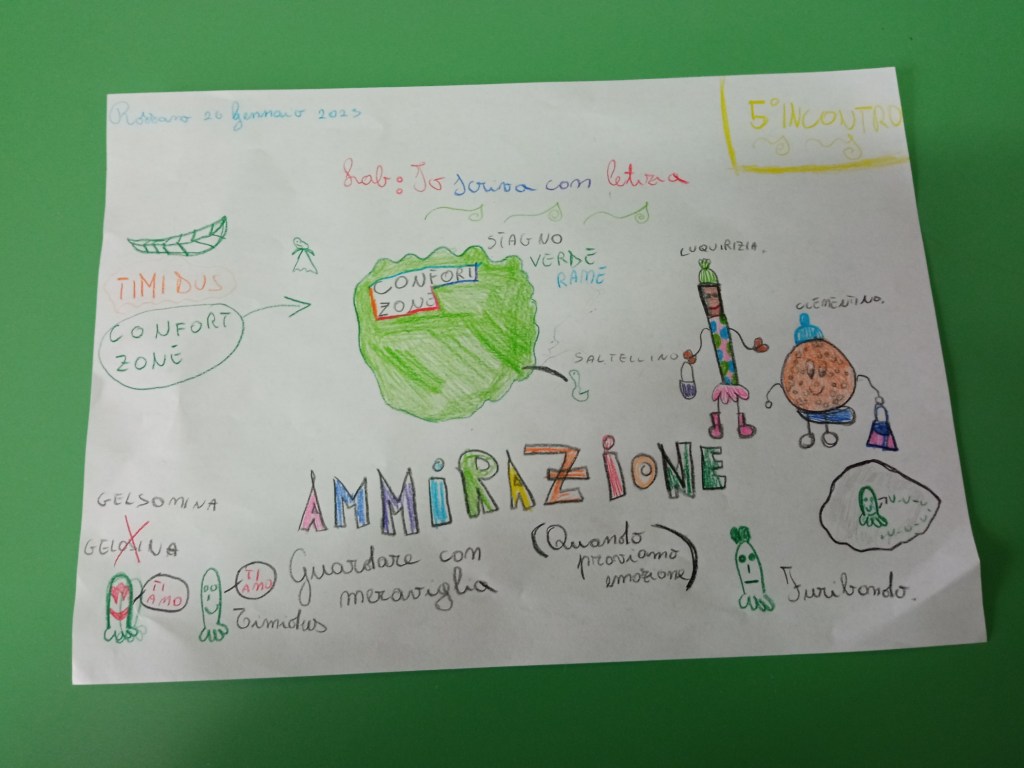 Rossano 26 Gennaio 2023
5° INCONTRO
Lab: Io scrivo con letizia
STAGNO
VERDE
RAME
TIMIDUS
CONFORT
ZONE
CONFORT
ZONE
SALTELLINO
LUQUIRIZIA.
CLEMENTINO.
AMMIRAZIONE
Guardare con
meraviglia
(Quando
proviamo
emozione)
GELSOMINA
GELOSINA
TI
AMO
TI
AMO
Timidus
Furibondo.